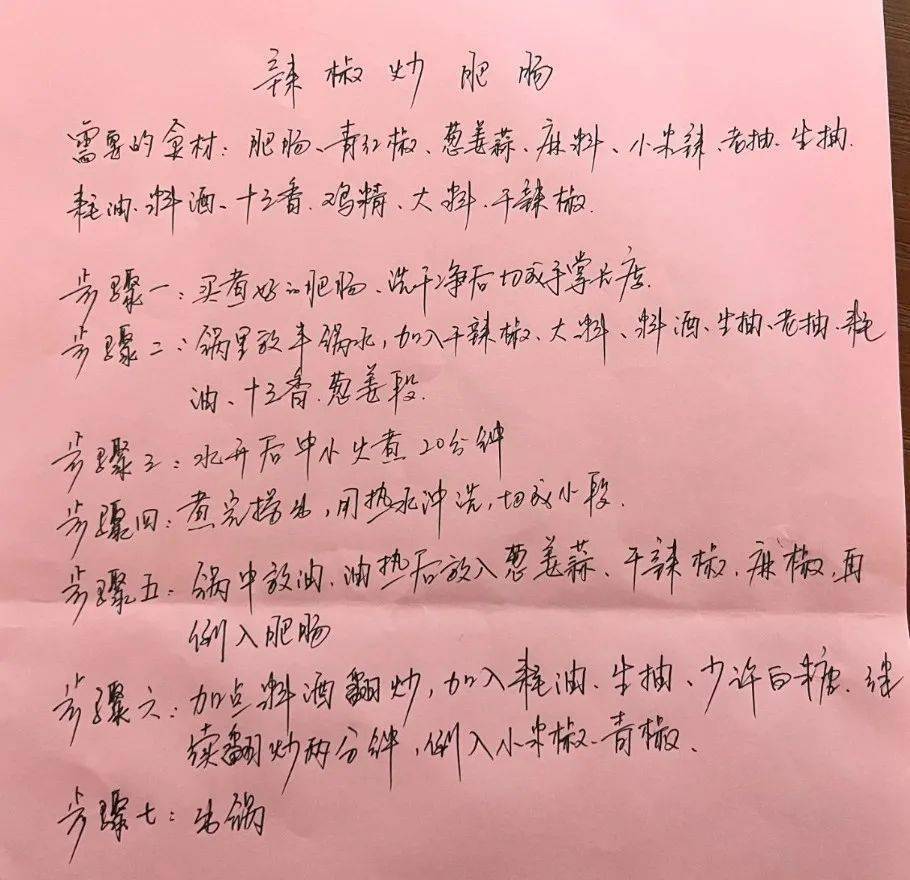 辣椒炒肥肠
需要的食材：肥肠、青红椒、葱姜蒜、麻料、小米辣、老抽、生抽、
耗油、料酒、十三香、鸡精、大料、干辣椒.
步骤一：买煮好的肥肠、洗干净后切成手掌长度.
步骤二：锅里放半锅水，加入干辣椒、大料、料酒、生抽、老抽、耗
油、十三香、葱姜段.
步骤三：水开后中小火煮20分钟
步骤四：煮完捞出，用热水冲洗，切成小段.
步骤五：锅中放油、油热后放入葱姜蒜、干辣椒、麻椒，再
倒入肥肠
步骤六：加点料酒翻炒，加入耗油、生抽、少许白糖、继
续翻炒两分钟，倒入小米椒、青椒、
步骤七：出锅